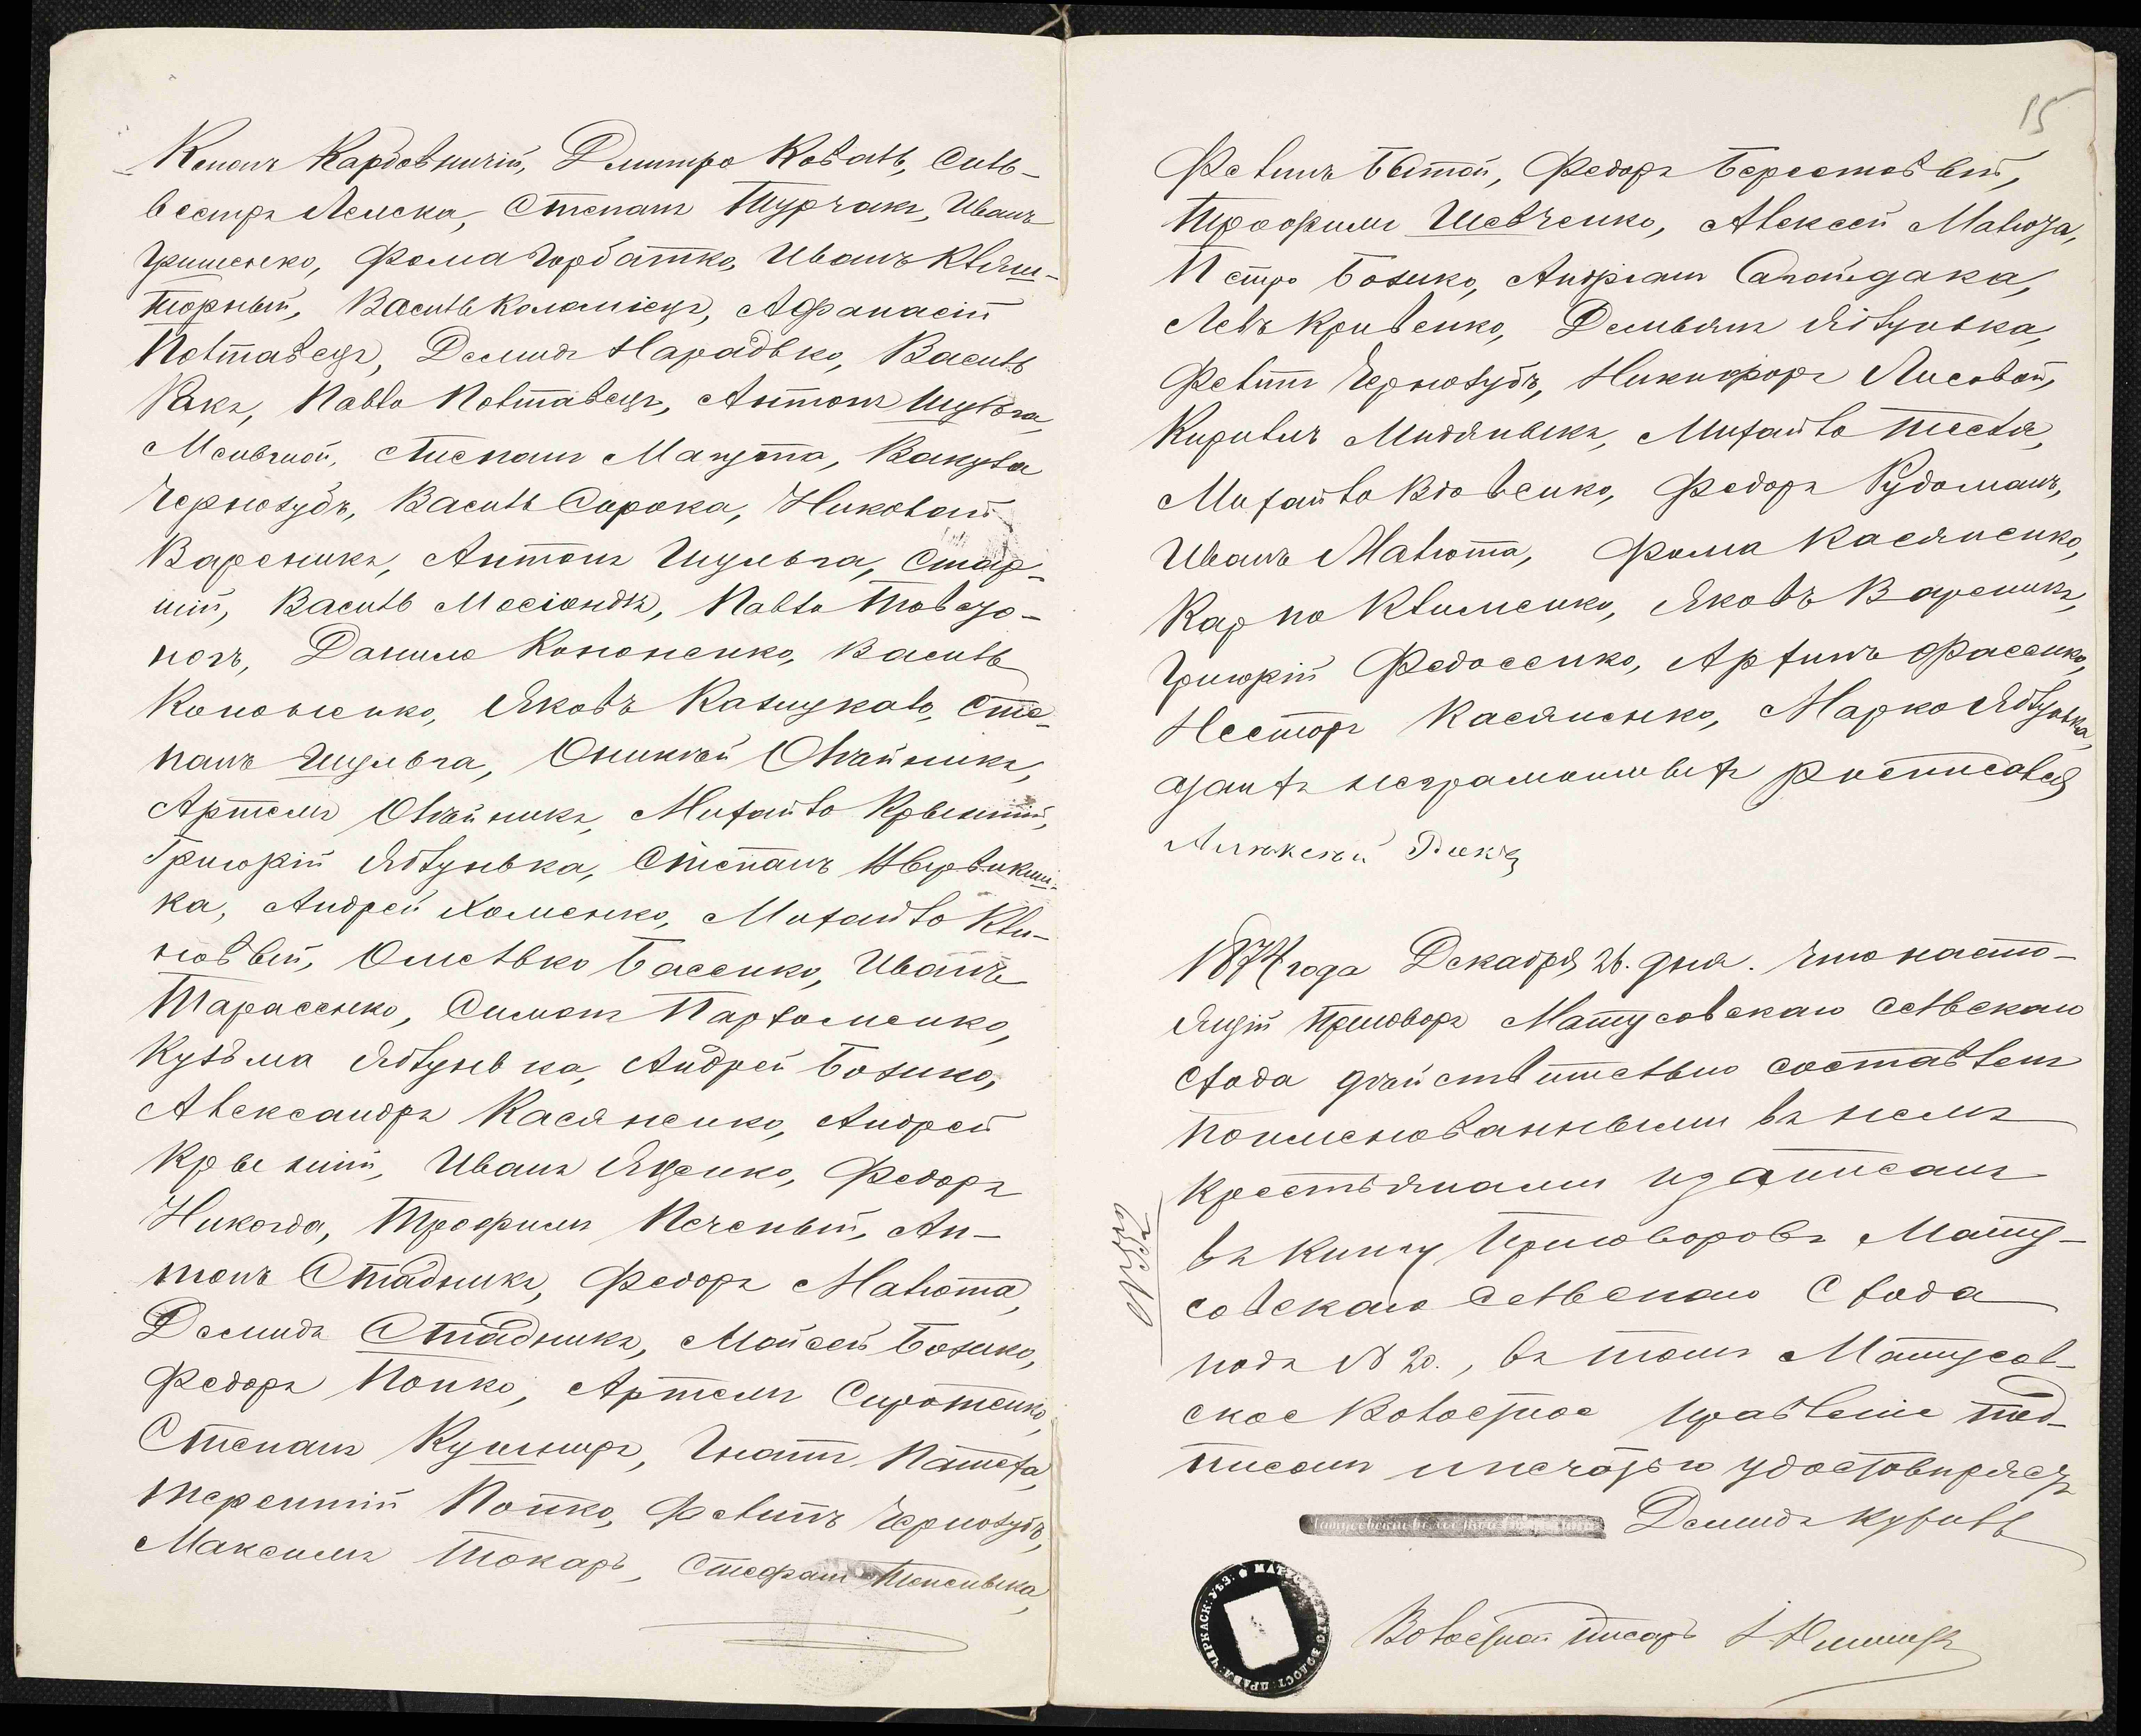 Кононъ Карбовничій, Дмитро Коваль, Силь-
вестръ Лемека, Степанъ Турчакъ, Иванъ
Гришенко, Фома Горбатко, Иванъ Кляш-
торный, Василь Коломіецъ, Афанасій
Полтавецъ, Демидъ Нарадько, Василь
Ракъ, Павло Полтавецъ, Антонъ Шульга
Степанъ Макута, Вакула
Чернозубъ, Василь Сорока, Николай
Вареникъ, Антонъ Шульга, Стар-
шій, Василь Павло Товсто-
ногъ, Данило Кононенко, Василь
Кононенко, Яковъ Сте-
панъ Шульга, Олѣйникъ,
Артемъ Олѣйникъ, Михайло Крытій,
Григорій Яблунька, Степанъ
ка, Андрей Хоменко, Михайло Кли-
новый, Омелько Басенко, Иванъ
Тарасенко, Симонъ Пархоменко,
Кузьма Яблунька, Андрей Бозько,
Александръ Касяненко, Андрей
Иванъ Яценко, Федоръ
Никогда, Трофимъ Печеный, Ан-
тонъ Стадникъ, Федоръ Малюта,
Демидъ Стадникъ, Мойсей Бозько,
Федоръ Попко, Артемъ Сиротенко,
Степанъ Кушниръ, Гнатъ Пателя,
Терентій Попко, Филипъ Чернозубъ,
Максимъ Токарь, Стефанъ
15
Филипъ Бѣлой, Федоръ Берестовый,
Трофимъ Шевченко, Алексей Малюга,
Петро Бозько, Андріанъ Сагайдака,
Левъ Кривенко, Демьянъ Яблунька,
Филипъ Чернозубъ, Никифоръ Лисовой,
Кирилъ Мидяникъ, Михайло Тесля,
Михайло Вдовенко, Федоръ Рудоманъ,
Иванъ Малюта, Фома Касяненко,
Карпо Клименко, Яковъ Вареникъ,
Григорій Федосенко, Архипъ Фасенко,
Несторъ Касяненко, Марко Яблунька,
а за нихъ неграмотныхъ росписался
Алѣксѣй
1874 года Декабря 26. дня. что насто-
ящій приговоръ Матусовскаго сельскаго
схода дѣйствительно составленъ
поименованными въ немъ
крестьянами и записанъ
въ книгу приговоровъ Мату-
совскаго сельскаго схода
подъ № 20., въ томъ Матусов-
ское Волостное правленіе под-
писомъ и печатью удостовѣряетъ
Демидъ Кубиль
Волостной писарь
№ 552
ЧЕРКАСК: УѢЗ: МАТУСОВСКАГО ВОЛОСТ: ПРАВЛ: